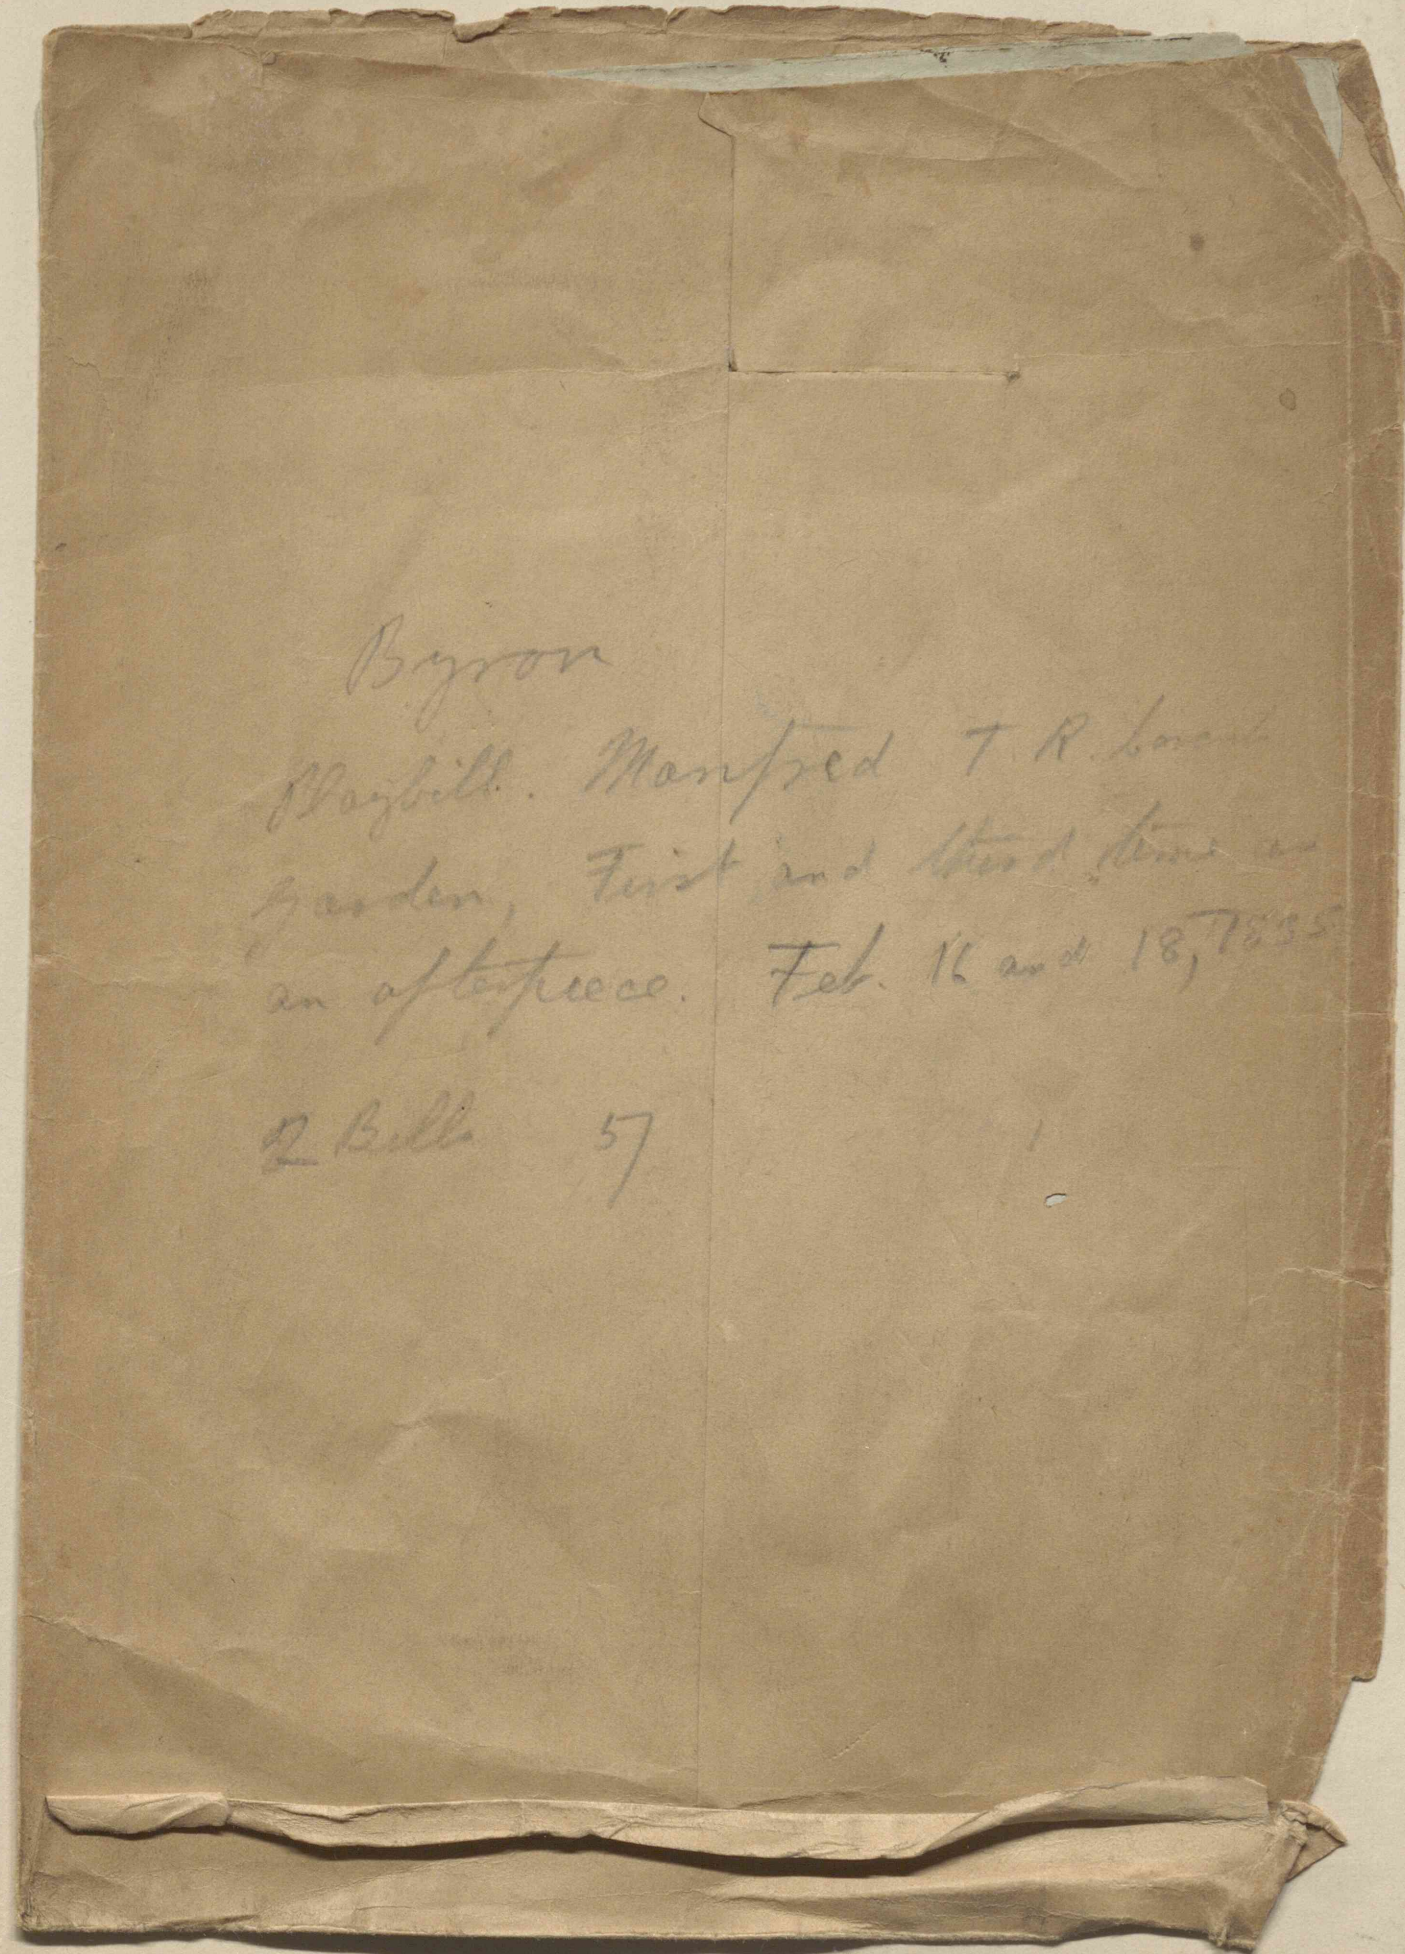 Byron
Playbill. Manfred T. R. Covent
garden, First and third time as
an afterpiece. Feb. 16 and 18, 1835
2 Bills 57